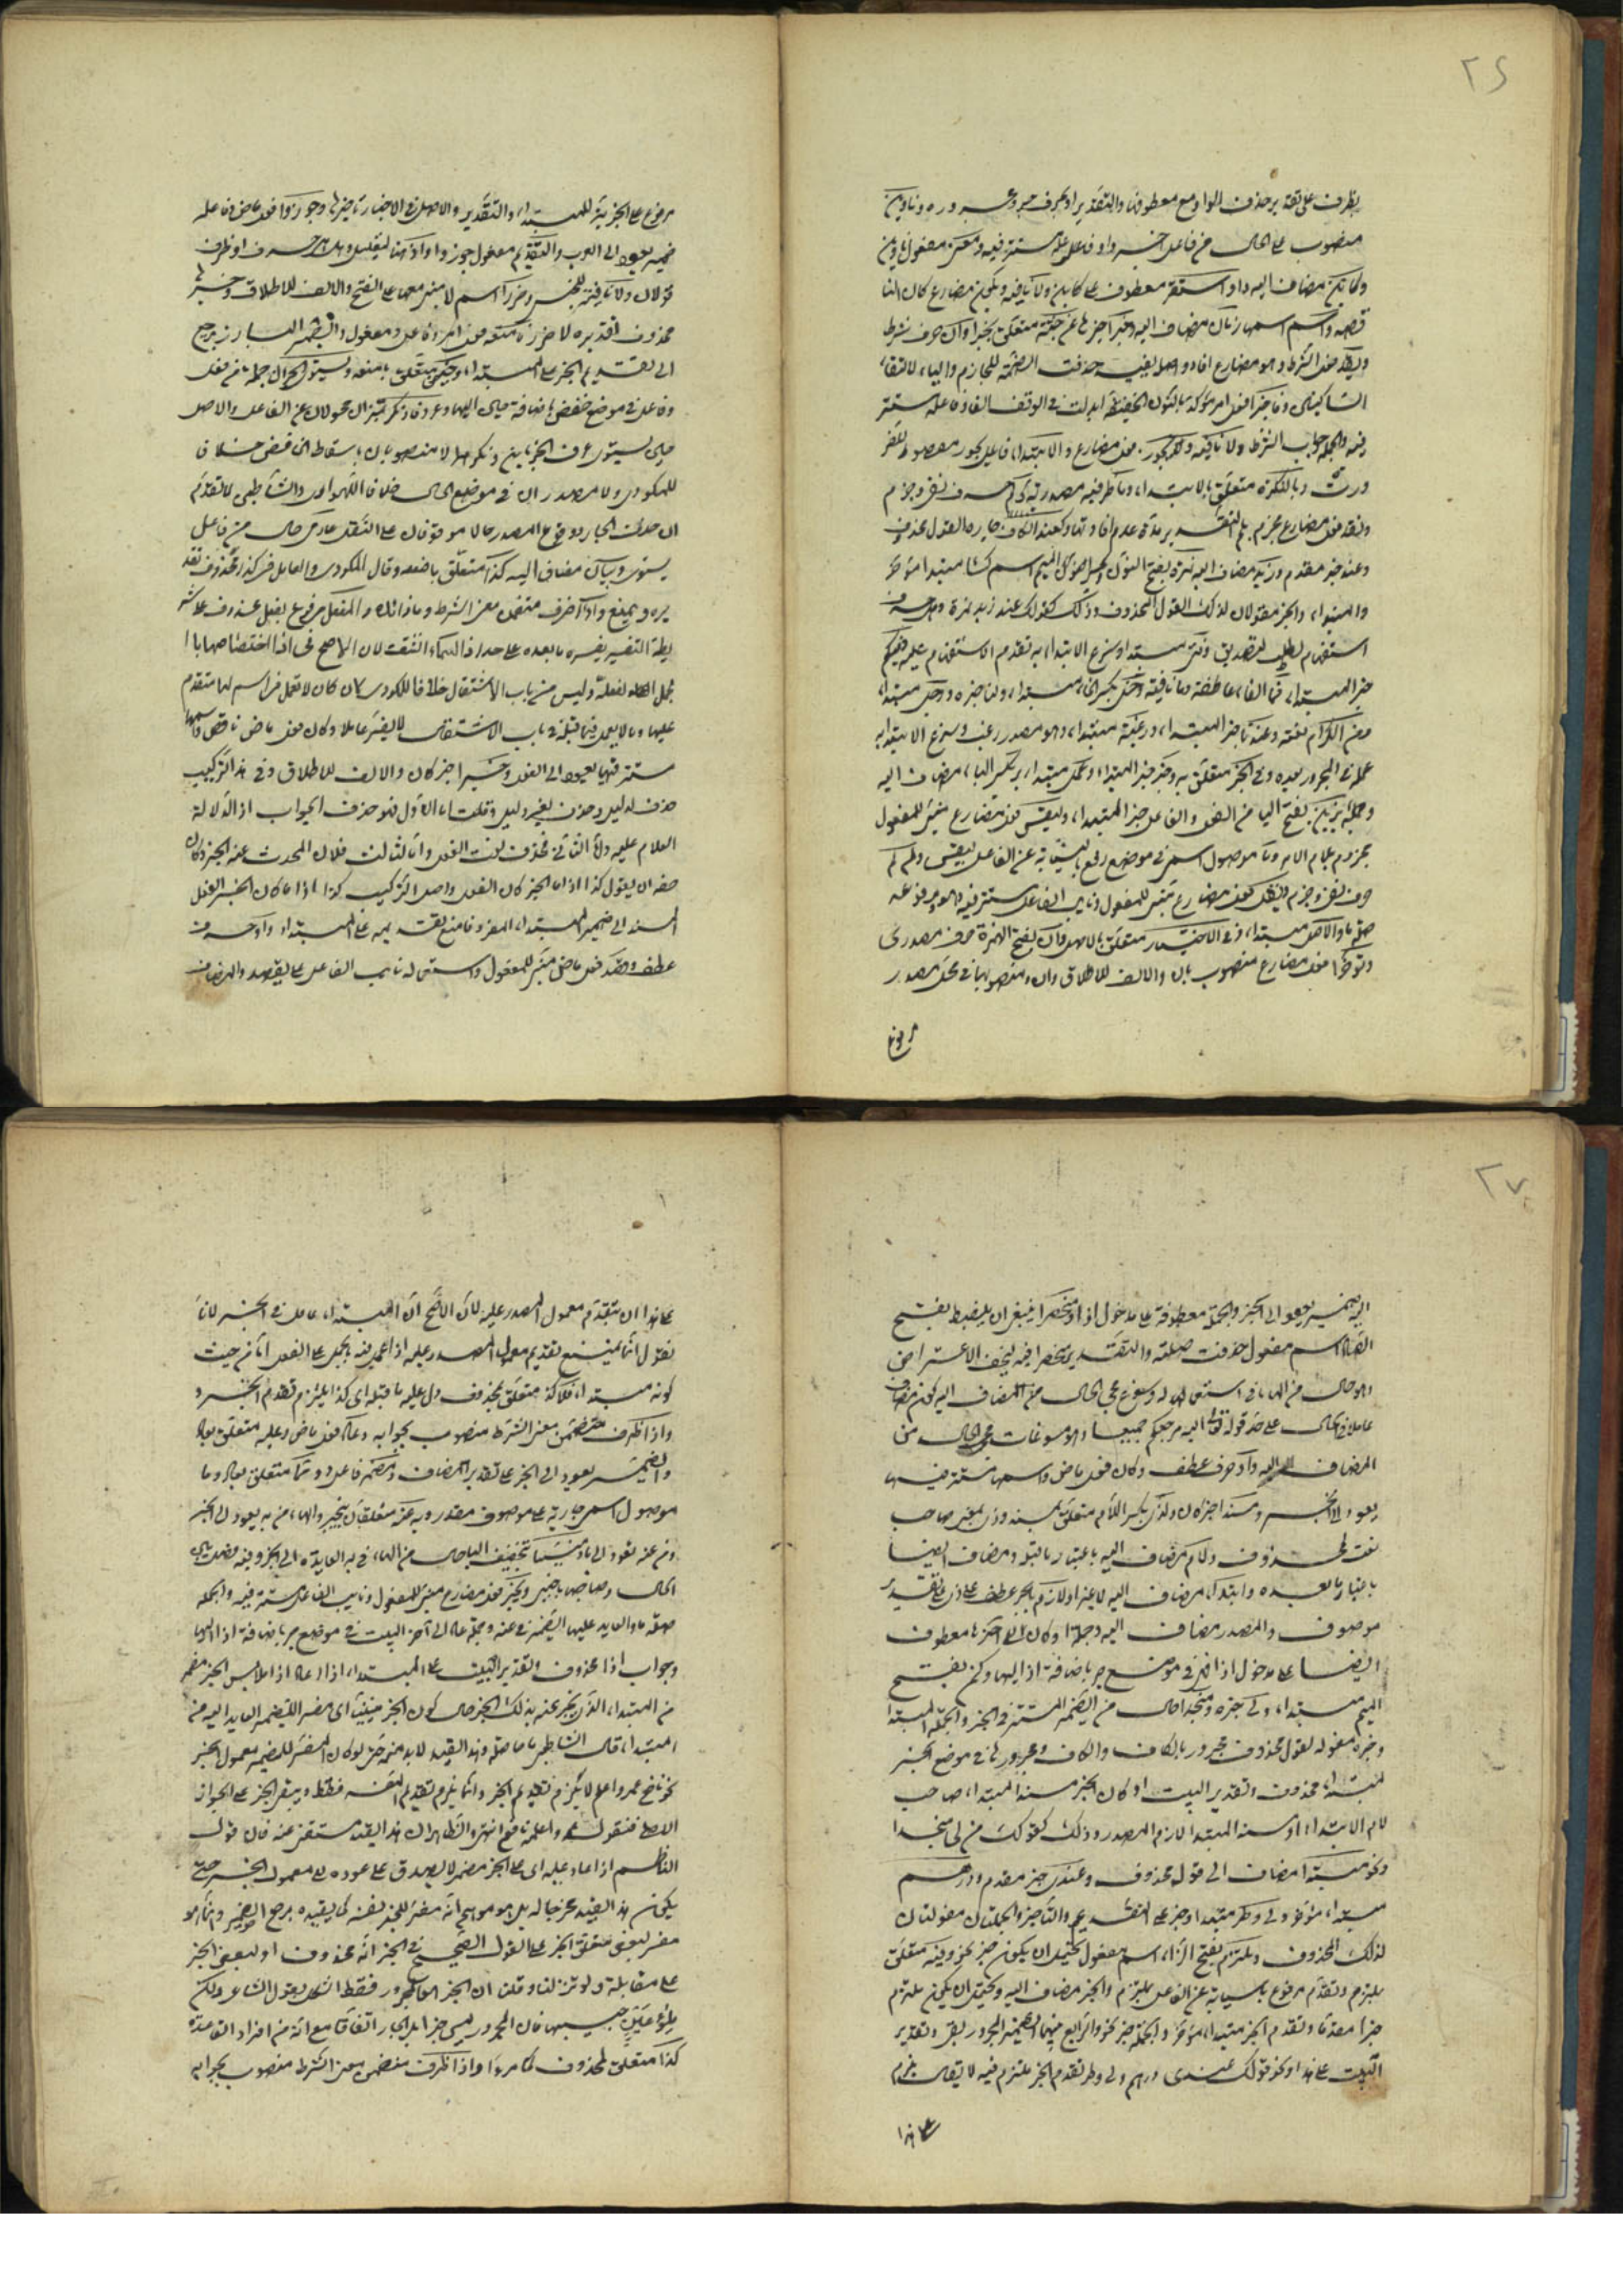 ٢٦
بظرف على تقدير حذف الواو مع معطوفها والتقدير او بحرف جر ومجروره وناوين
منصوب على الحال من فاعل اخبروا وفاعله مستتر فيه ومعنى مفعول ناوين
وكائن مضاف اليه واو استقر معطوف على كائن ولا نافيه ويكون مضارع كان الناقصه
واسم اسمها زمان مضاف اليه وخبرا خبرها عن جثة متعلق بخبرا وان حرف شرط
ويفد فعل الشرط وهو مضارع افاد واصله يفيد حذفت الضمة للجازم والياء لالتقاء
الساكنين وفاخبرا فعل امر مؤكد بالنون الخفيفة ابدلت في الوقف الفا وفاعله مستتر
فيه والجملة جواب الشرط ولا نافيه ويجوز فعل مضارع والابتداء فاعل يجوز
وبالنكرة متعلق بالابتداء وما ظرفيه مصدرية لم حرف نفي وجزم
وتفد فعل مضارع مجزوم بلم التقدير مدة عدم افادتها وكعند الكاف جاره لقول محذوف
وعند خبر مقدم وزيد مضاف اليه نمرة بفتح النون وكسر الميم اسم كسا مبتدا مؤخر
والمبتداء والخبر مقولان لذلك القول المحذوف وذلك كقولك عند زيد نمرة وهل حرف
استفهام لطلب التصديق وفتى مبتدا وسوغ الابتداء به تقدم الاستفهام عليه وفيكم
خبر المبتداء فما الفاء عاطفة وما نافيه وخل بكسر الخاء مبتداء ولنا خبره ورجل مبتداء
من الكرام نعته وعندنا خبر المبتداء ورغبة مبتداء وهو مصدر رغب وسوغ الابتدا به
عمله في المجرور بعده وفي الخير متعلق به وخير خبر المبتداء وعمل مبتداء بر بكسر الباء مضاف اليه
وجملة يزين بفتح الياء من الفعل والفاعل خبر المبتداء وليقس فعل مضارع مبني للمفعول
مجزوم بلام الامر وما موصول اسمي في موضع رفع بالنيابة عن الفاعل ليقس ولم لم
حرف نفي وجزم ويقل فعل مضارع مبني للمفعول ونايب الفاعل مستتر فيه وهو مرفوعه
صلة ما والاصل مبتداء وفي الاخبار متعلق بالاصل وان بفتح الهمزة حرف مصدري
وتؤخرا فعل مضارع منصوب بان والالف للاطلاق وان ومنصوبها في محل مصدر
مرفوع
مرفوع على الخبرية للمبتداء والتقدير والاصل في الاخبار تاخيرها وجوزوا فعل ماض وفاعله
ضمير يعود الى العرب والتقديم مفعول جوزوا واذ هنا
ولا نافية للجنس وضررا اسم لا مبني معها على الفتح والالف للاطلاق وخبرها
محذوف تقديره لا ضرر فامنعه فعل امر وفاعل ومفعول والضمير البارز يرجع
الى تقديم الخبر على المبتداء وحين متعلق بامنعه ويستوي الجزآن جملة من فعل
وفاعل في موضع خفض باضافة حين اليها وعرفا ونكرا تمييزان محولان عن الفاعل والاصل
حين يستوي عرف الجزئين ونكرهما لا منصوبان باسقاط الخافض خلافا
للمكودي ولا مصدران في موضع الحال خلافا للهواري والشاطبي
يستوي وبيان مضاف اليه كذا متعلق بامنعه وقال المكودي والعامل في كذا محذوف تقديره
ويمنع واذا ظرف متضمن معنى الشرط وما زائدة والفعل مرفوع بفعل محذوف على شريطة
التفسير يفسره ما بعده على حد اذا السماء انشقت لان الاصح في اذا اختصاصها بالجمل
الفعلية وليس من باب الاشتغال خلافا للمكودي
عليها وما لا يعمل فيما قبله في باب الاشتغال لا يفسر عاملا وكان فعل ماض ناقص واسمها
مستتر فيها يعود الى الفعل وخبرا خبر كان والالف للاطلاق وفي هذا التركيب
حذف لدليل وحذف لغير دليل وقلب اما الاول فهو حذف الجواب اذا لدلالة
الكلام عليه واما الثاني فحذف نعت الفعل واما الثالث فلان المحدث عنه الخبر وكان
حقه ان يقول كذا اذا ما الخبر كان الفعل واصل التركيب كذا اذا ما كان الخبر الفعل
المسند الى ضمير المبتداء المفرد فامنع تقديمه على المبتداء واو حرف
عطف وقصد فعل ماض مبني للمفعول واستعماله نايب الفاعل على يقصد والمضاف
٢٧
اليه ضمير يعود الى الخبر والجملة معطوفة على مدخول اذا ومنحصرا ينبغي ان يضبط بفتح
الصاد اسم مفعول حذفت صلته والتقدير منحصرا فيه ليخف الاعتراض
وهو حال من الهاء في استعماله وسوغ مجي الحال من المضاف اليه كون المضاف
عاملا في الحال على حد قوله تعالى اليه مرجعكم جميعا وهو مسوغات مجي الحال من
المضاف اليه واو حرف عطف وكان فعل ماض واسمها مستتر فيها
يعود الى الخبر ومسندا خبر كان ولذي بكسر اللام متعلق بمسند وذي بمعنى صاحب
نعت لمحذوف ولام مضاف اليه باعتبار ما قبله ومضاف ايضا
باعتبار ما بعده وابتداء مضاف اليه لاغير او لازم بالجر عطف على ذي على تقدير
موصوف والصدر مضاف اليه وجملة او كان الى اخرها معطوف
ايضا على مدخول اذا فهي في موضع جر باضافة اذا اليها وكمن بفتح
الميم مبتداء ولي خبره ومنجدا حال من الضمير المستتر في الخبر والجملة المبتدا
وخبره مقوله لقول محذوف مجرور بالكاف والكاف ومجرورها في موضع الخبر
لمبتداء محذوف وتقدير البيت او كان الخبر مسندا لمبتداء صاحب
لام الابتداء او مسند المبتدا لازم الصدر وذلك كقولك من لي منجدا
ونحو مبتدا مضاف الى قول محذوف وعندي خبر مقدم ودرهم
مبتداء مؤخر ولي وطر مبتدا وخبر على التقديم والتاخير والجملتان مقولتان
لذلك المحذوف وملتزم بفتح الزاء اسم مفعول يحتمل ان يكون خبر نحو وفيه متعلق
بملتزم وتقدم مرفوع بالنيابة عن الفاعل بملتزم والخبر مضاف اليه ويحتمل ان يكون ملتزم
خبرا مقدما وتقدم الخبر مبتداء مؤخر والجملة خبر نحو والرابط بينهما الضمير المجرور بفي وتقدير
البيت على هذا ونحو قولك عندي درهم ولي وطر تقدم الخبر ملتزم فيه لا يقال يلزم
على هذا
على هذا ان يتقدم معمول المصدر عليه لان الاصح ان المبتداء عامل في الخبر لانا
نقول انما يمتنع تقديم معمول المصدر عليه اذا عمل فيه بالحمل على الفعل اما من حيث
كونه مبتداء فلا كذا متعلق بمحذوف دل عليه ما قبله اي كذا يلتزم تقدم الخبر و
واذا ظرف متضمن معنى الشرط منصوب بجوابه وعاد فعل ماض وعليه متعلق بعاد
والضمير يعود الى الخبر على تقدير المضاف ومضمر فاعل عاد ومما متعلق بعاد وما
موصول اسمي جارية على موصوف مقدر وبه وعنه متعلقان بيخبر والهاء من به يعود الى الخبر
ومن عنه تعود الى ما ومبينا بتخفيف الياء حال من الهاء في به العايدة الى الخبر
الحال وصاحبها باجنبي ويخبر فعل مضارع مبني للمفعول ونايب الفاعل مستتر فيه والجملة
صلة ما والعايد عليها الضمير في عنه وجملة عاد الى آخر البيت في موضع جر باضافة اذا اليها
وجواب اذا محذوف وتقدير البيت على المبتداء اذا عاد على ملابس الخبر مضمر
من المبتداء الذي يخبر عنه بذلك الخبر حال كون الخبر مبينا اي مفسرا للضمير العايد اليه من
المبتداء قال الشاطبي ما حاصله وهذا القيد لابد منه حتى لو كان المفسر للضمير معمول الخبر
لم يلزم تقديم الخبر وانما يلزم تقديم المفسر فقط ويبقى الخبر على الجواز
الاصلي فنقول انتهى والظاهر ان هذا القيد مستغنى عنه فان قول
الناظم اذا عاد عليه اي على الخبر مضمر لا يصدق على عوده على معمول الخبر حتى
يكون هذا القيد مخرجا له بل هو موهم انه مفسر للخبر نفسه كما يفيده مرجع الضمير وانما هو
مفسر لبعض متعلق الخبر على القول الصحيح في الخبر انه محذوف او لبعض الخبر
على مقابله ولو تنزلنا وقلنا ان الخبر هو المجرور فقط اشكل بقول الشاعر ولكن
ملؤ عين حبيبها فان المجرور ليس خبرا بل الجار اتفاقا مع انه من افراد القاعدة
كذا متعلق بمحذوف كما مر واذا ظرف متضمن معنى الشرط منصوب بجوابه